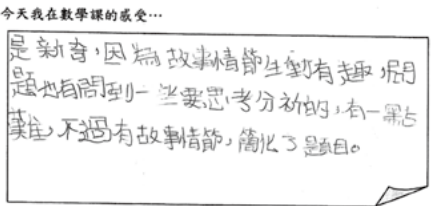 今天我在數學課的感受…
是新奇,因為故事情節生動有趣,問
題也有問到一些要思考分析的,有一點
難,不過有故事情節,簡化了題目。